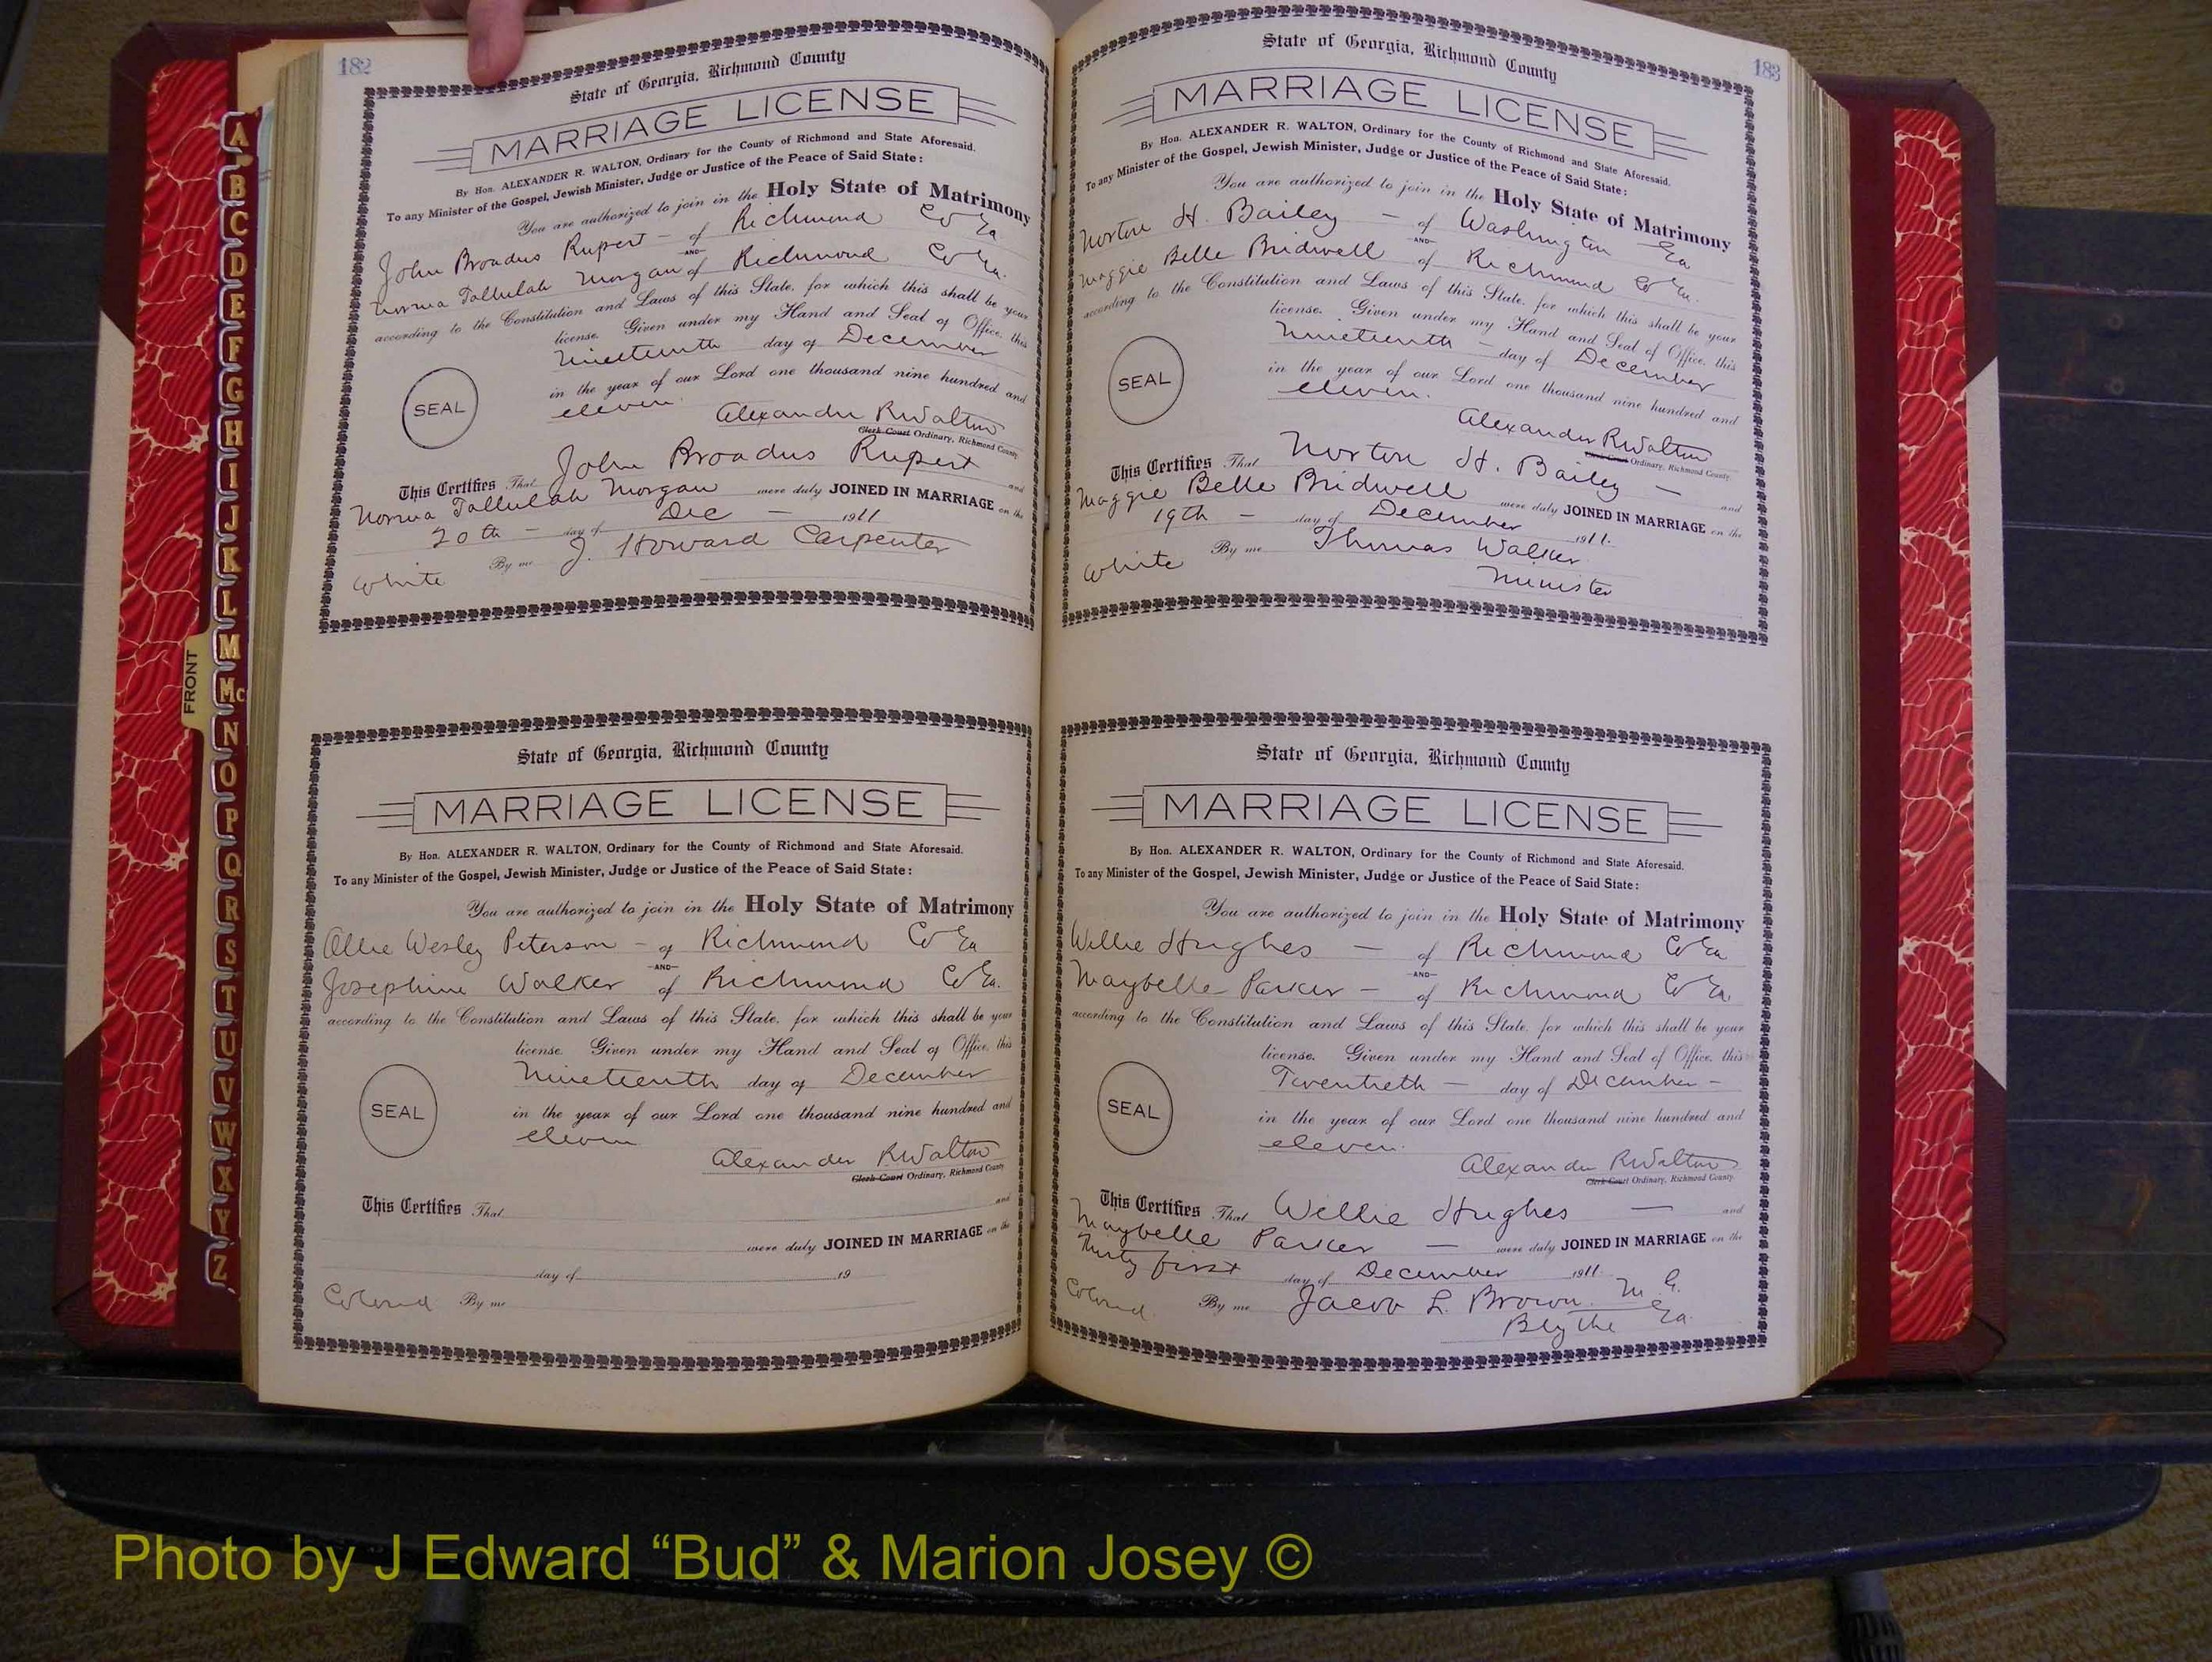 182
State of Georgia, Richmond County
MARRIAGE LICENSE
By Hon. ALEXANDER R. WALTON, Ordinary for the County of Richmond and State Aforesaid.
To any Minister of the Gospel, Jewish Minister, Judge or Justice of the Peace of Said State:
You are authorized to join in the Holy State of Matrimony
John Broadus Rupert - of Richmond Co Ga
AND
Norma Tallulah Morgan of Richmond Co Ga.
according to the Constitution and Laws of this State, for which this shall be your
license. Given under my Hand and Seal of Office, this
Nineteenth day of December
in the year of our Lord one thousand nine hundred and
eleven.
SEAL
Alexander R Walton
Clerk Court Ordinary, Richmond County
This Certifies That John Broadus Rupert and
Norma Tallulah Morgan were duly JOINED IN MARRIAGE on the
20th - day of Dec - 1911
White By me J. Howard Carpenter
State of Georgia, Richmond County
MARRIAGE LICENSE
By Hon. ALEXANDER R. WALTON, Ordinary for the County of Richmond and State Aforesaid.
To any Minister of the Gospel, Jewish Minister, Judge or Justice of the Peace of Said State:
You are authorized to join in the Holy State of Matrimony
Ollie Wesley Peterson - of Richmond Co Ga
AND
Josephine Walker of Richmond Co Ga.
according to the Constitution and Laws of this State, for which this shall be your
license. Given under my Hand and Seal of Office, this
Nineteenth day of December
in the year of our Lord one thousand nine hundred and
eleven
SEAL
Alexander R Walton
Clerk Court Ordinary, Richmond County
This Certifies That and
were duly JOINED IN MARRIAGE on the
day of 19
Colored By me
183
State of Georgia, Richmond County
MARRIAGE LICENSE
By Hon. ALEXANDER R. WALTON, Ordinary for the County of Richmond and State Aforesaid.
To any Minister of the Gospel, Jewish Minister, Judge or Justice of the Peace of Said State:
You are authorized to join in the Holy State of Matrimony
Norton H. Bailey - of Washington Ga
AND
Maggie Belle Bridwell of Richmond Co Ga.
according to the Constitution and Laws of this State, for which this shall be your
license. Given under my Hand and Seal of Office, this
Nineteenth - day of December
in the year of our Lord one thousand nine hundred and
eleven.
SEAL
Alexander R Walton
Clerk Court Ordinary, Richmond County
This Certifies That Norton H. Bailey - and
Maggie Belle Bridwell were duly JOINED IN MARRIAGE on the
19th - day of December 1911.
White By me Thomas Walker
Minister
State of Georgia, Richmond County
MARRIAGE LICENSE
By Hon. ALEXANDER R. WALTON, Ordinary for the County of Richmond and State Aforesaid.
To any Minister of the Gospel, Jewish Minister, Judge or Justice of the Peace of Said State:
You are authorized to join in the Holy State of Matrimony
Willie Hughes - of Richmond Co Ga
AND
Maybelle Parker - of Richmond Co Ga.
according to the Constitution and Laws of this State, for which this shall be your
license. Given under my Hand and Seal of Office, this
Twentieth - day of December -
in the year of our Lord one thousand nine hundred and
eleven.
SEAL
Alexander R Walton
Clerk Court Ordinary, Richmond County
This Certifies That Willie Hughes - and
Maybelle Parker - were duly JOINED IN MARRIAGE on the
Thirty first day of December 1911.
Colored. By me Jacob L. Brown. M. G.
Blythe Ga.
FRONT
A
B
C
D
E
F
G
H
I
J
K
L
M
Mc
N
O
P
Q
R
S
T
U
V
W
X
Y
Z
Photo by J Edward “Bud” & Marion Josey ©